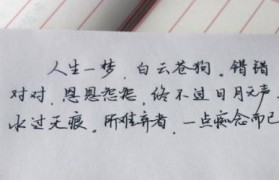 人生一梦，白云苍狗。错错
对对，恩恩怨怨，终不过日月无声
水过无痕。所难弃者，一点痴念而已